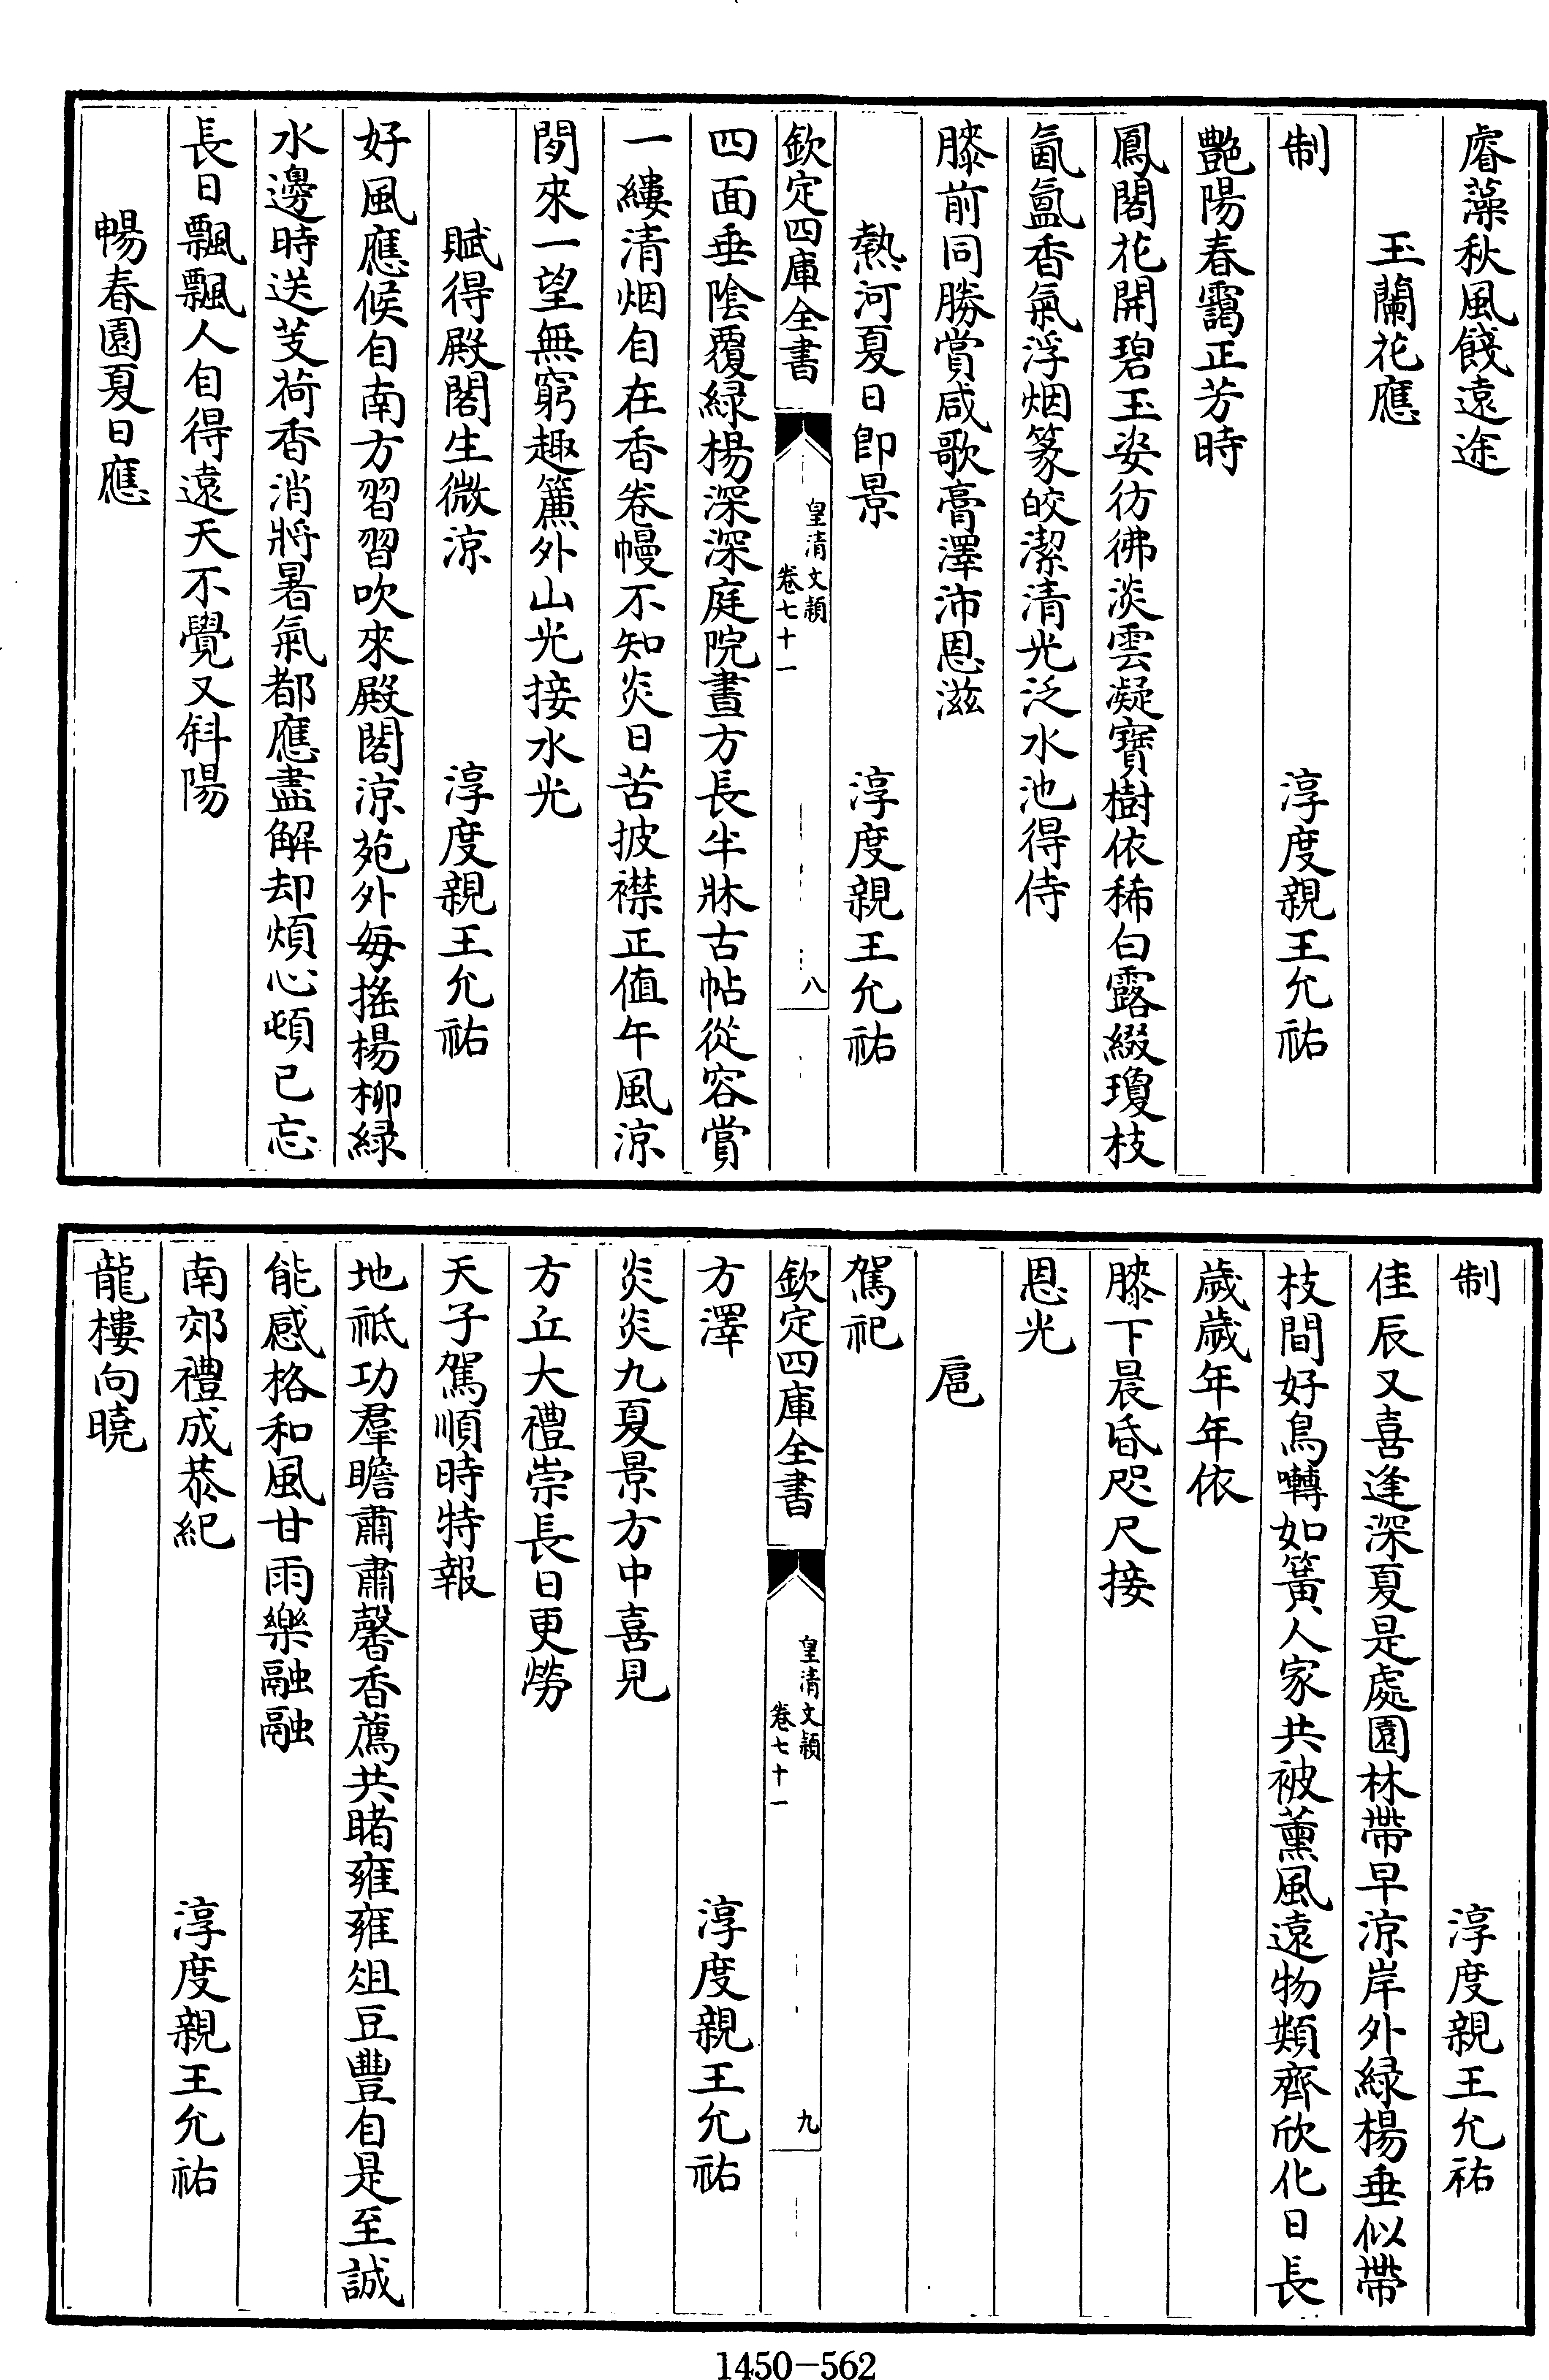 睿藻秋風餞遠途
玉蘭花應
制 淳度親王允祐
艷陽春靄正芳時
鳳閣花開碧玉姿彷彿淡雲凝寶樹依稀白露綴瓊枝
氤氳香氣浮烟篆皎潔清光泛水池得侍
膝前同勝賞咸歌膏澤沛恩滋
熱河夏日即景 淳度親王允祐
欽定四庫全書 皇清文穎 卷七十一 八
四面垂陰覆綠楊深深庭院晝方長半牀古帖從容賞
一縷清烟自在香卷幔不知炎日苦披襟正值午風涼
閒來一望無窮趣簾外山光接水光
賦得殿閣生微涼 淳度親王允祐
好風應候自南方習習吹來殿閣涼苑外每搖楊柳綠
水邊時送芰荷香消將暑氣都應盡解却煩心頓已忘
長日飄飄人自得遠天不覺又斜陽
暢春園夏日應
制 淳度親王允祐
佳辰又喜逢深夏是處園林帶早涼岸外綠楊垂似帶
枝間好鳥囀如簧人家共被薰風遠物類齊欣化日長
歲歲年年依
膝下晨昏咫尺接
恩光
扈
駕祀
欽定四庫全書 皇清文穎 卷七十一 九
方澤 淳度親王允祐
炎炎九夏景方中喜見
方丘大禮崇長日更勞
天子駕順時特報
地祗功羣瞻肅肅馨香薦共睹雍雍俎豆豐自是至誠
能感格和風甘雨樂融融
南郊禮成恭紀 淳度親王允祐
龍樓向曉
1450-562